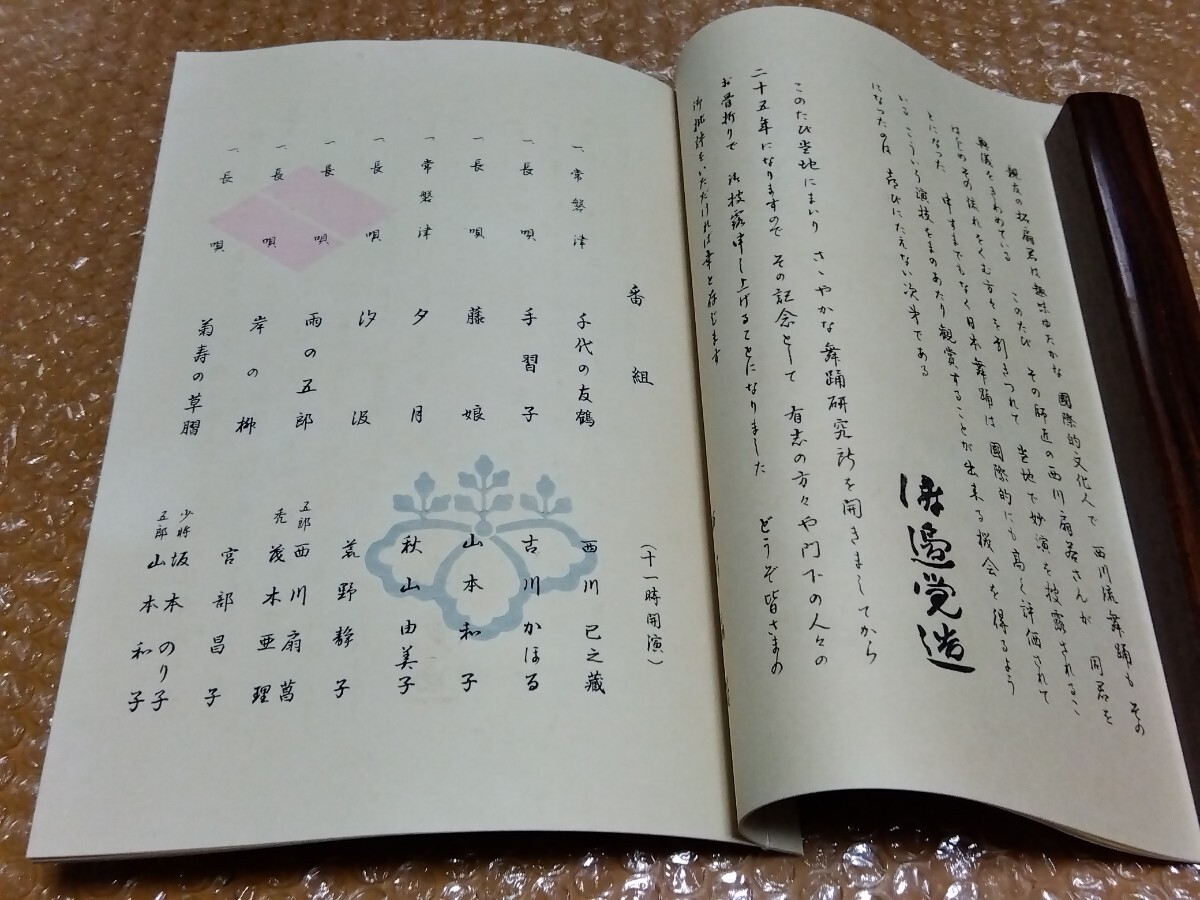 親友の扇君は趣味ゆたかな 國際的文化人で 西川流舞踊も その
をきわめている このたび その師匠の西川扇さんが 同君を
はじめその流れをくむ方々を引きつれて 当地で妙演を披露されるこ
とになった 申すまでもなく日本舞踊は 國際的にも高く評価されて
いる こういう演技をまのあたり観賞することが出来る機会を得るよう
になったのは 喜びにたえない次第である
渡邉覚造
このたび当地にまいり さゝやかな舞踊研究所を開きましてから
二十五年になりますので その記念として 有志の方々や門下の人々の
お骨折りで 御披露申し上げることになりました どうぞ皆さまの
御批評をいただければ幸と存じます
番組
(十一時開演)
一、常磐津 千代の友鶴 西川巳之藏
一、長唄 手習子 古川かほる
一、長唄 藤娘 山本和子
一、常磐津 夕月 秋山由美子
一、長唄 汐汲 荒野静子
一、長唄 雨の五郎 五郎 西川扇菖
禿 茂木亜理
一、長唄 岸の柳 宮部昌子
一、長唄 菊寿の草摺 少将 坂本のり子
五郎 山本和子